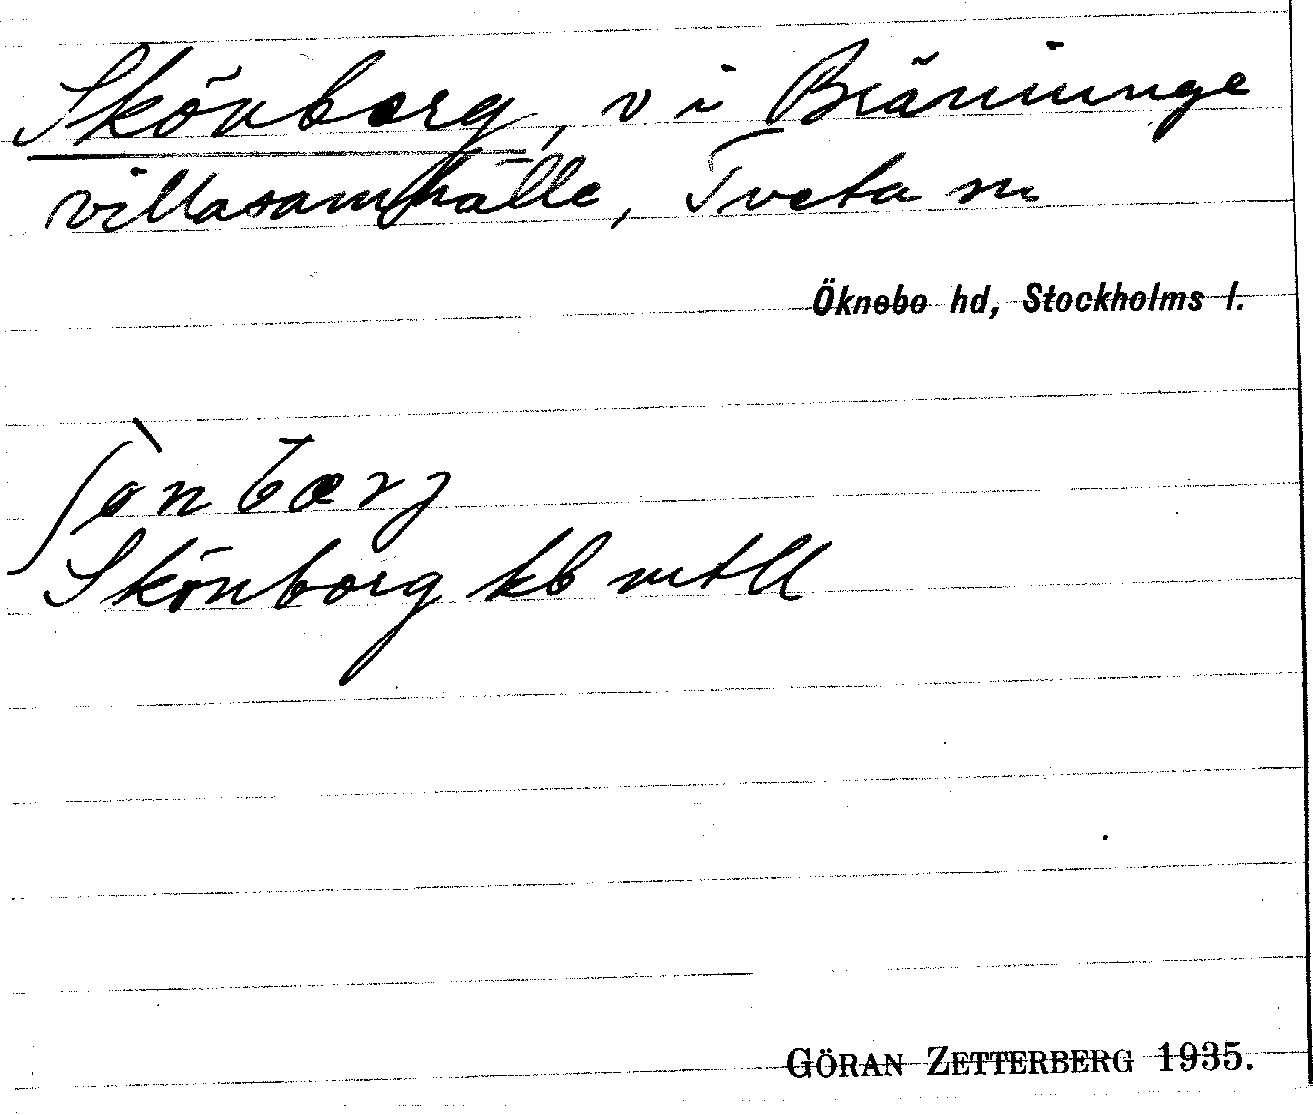 Skönborg, v i Bränninge
villasamhälle, Tveta sn
Öknebo hd, Stockholms l.
ʃö̀nbærj
Skönborg kb mtll
GÖRAN ZETTERBERG 1935.